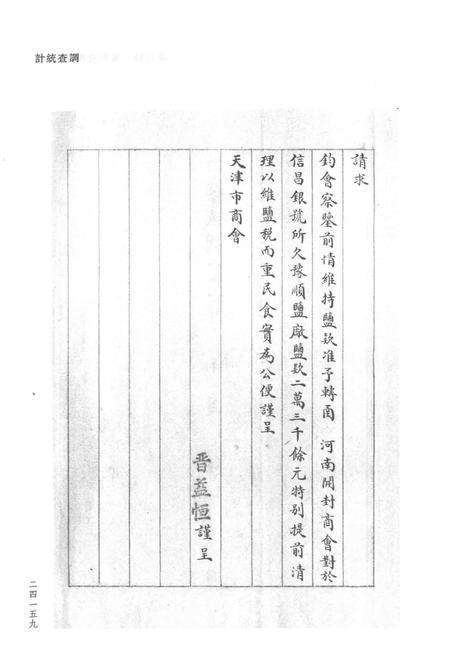 調查統計
請求
鈞會察鑒前情維持鹽款准予轉函　河南開封商會對於
信昌銀號所欠豫順鹽廠鹽款二萬三千餘元特別提前清
理以維鹽稅而重民食實為公便謹呈
天津市商會
晋益恒謹呈
二四一五九